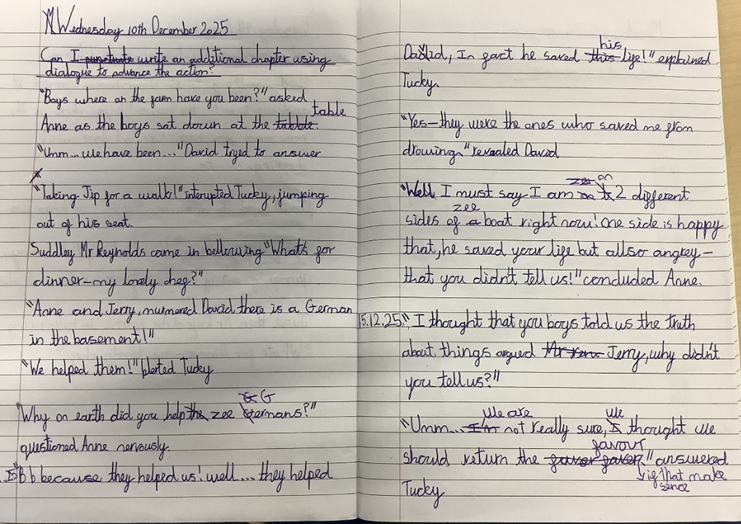 Wednesday 10th December 2025
Can I punctuate write an additional chapter using
dialogue to advance the action?
"Boys where on the farm have you been?" asked
table
Anne as the boys sat down at the tabble.
"Umm... we have been..." David tryed to answer
"Taking Jip for a walk!" interupted Tucky, jumping
out of his seat.
Suddley Mr Reynolds came in bellowing "What's for
dinner - my lovely cheg?"
"Anne and Jerry, mumered David there is a German
in the basement!"
"We helped them!" blerted Tucky
G
"Why on earth did you help the zee Germans?"
questioned Anne nervously.
"B b because they helped us! well... they helped
his
David, In fact he saved this life!" explained
Tucky.
"Yes - they were the ones who saved me from
drowing," revealed David.
zee on
"Well I must say I am 2 different
zee
sides of a boat right now! One side is happy
that, he saved your life but allso angrey -
that you didn't tell us!" concluded Anne.
15.12.25. "I thought that you boys told us the truth
about things argued Mr Jerry, why didn't
you tell us?"
We are we
"Umm... I'm not really sure, I thought we
favour
should return the favor" answered
if that make
Tucky sence